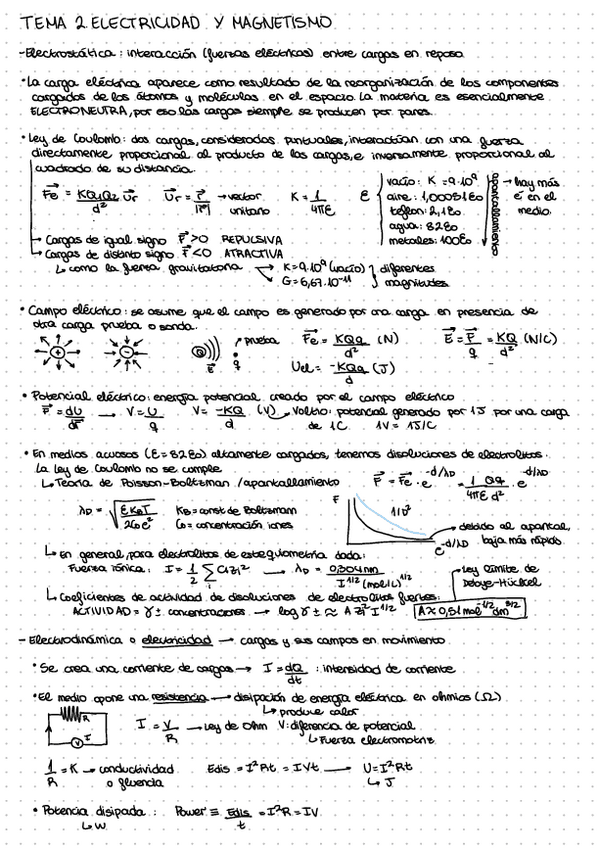 TEMA 2 ELECTRICIDAD Y MAGNETISMO
- Electrostática : interacción (fuerzas eléctricas) entre cargas en reposo
• La carga eléctrica aparece como resultado de la reorganización de los componentes
cargados de los átomos y moléculas en el espacio. La materia es esencialmente
ELECTRONEUTRA, por eso las cargas siempre se producen por pares.
• Ley de Coulomb: dos cargas, consideradas puntuales, interactúan con una fuerza
directamente proporcional al producto de las cargas, e inversamente proporcional al
cuadrado de su distancia.
Fe = KQ1Q2/d² Ur Ur = r/|r| → vector unitario K = 1/4πε
ε vacío: K = 9·10⁹
aire: 1,0005 εo
teflon: 2,1 εo
agua: 82 εo
metales: 100 εo
apantallamiento → hay más ε en el medio.
→ Cargas de igual signo F>0 REPULSIVA
→ Cargas de distinto signo F<0 ATRACTIVA
↳ como la fuerza gravitatoria → K=9.10⁹ (vacío) G=6,67.10⁻¹¹ } diferentes magnitudes
• Campo eléctrico: se asume que el campo es generado por una carga en presencia de
otra carga prueba o sonda.
+ - Q E q prueba
Fe = KQq/d² (N) E = F/q = KQ/d² (N/C)
Uel = -KQq/d (J)
• Potencial eléctrico: energía potencial creado por el campo eléctrico
F = dU/dr → V = U/q V = -KQ/d (V) → Voltio: potencial generado por 1J por una carga
de 1C 1V = 1J/C
• En medios acuosos (ε = 82 εo) altamente cargados, tenemos disoluciones de electrolitos.
La ley de Coulomb no se cumple
↳ Teoría de Poisson-Boltzman / apantallamiento F = Fe · e^(-d/λD) = 1/4πε Qq/d² · e^(-d/λD)
λD = √(εKBT/2Coe²) KB = const de Boltzmam
Co = concentración iones
F 1/d² e^(-d/λD) → debido al apantal, baja más rápido
↳ En general, para electrolitos de estequiometría dada:
Fuerza iónica: I = 1/2 Σ CiZi² → λD = 0,304 nm / I^(1/2) (mol/L)^(1/2) Ley límite de Debye-Hückel
↳ Coeficientes de actividad de disoluciones de electrolitos fuertes:
ACTIVIDAD = γ± concentraciones → log γ± ≈ A Zi² I^(1/2) A ≈ 0,51 mol^(-1/2) dm^(3/2)
- Electrodinámica o electricidad → cargas y sus campos en movimiento
• Se crea una corriente de cargas → I = dQ/dt : intensidad de corriente
• El medio opone una resistencia → disipación de energía eléctrica en ohmios (Ω)
↳ produce calor
R V I
I = V/R → Ley de Ohm V: diferencia de potencial
↳ Fuerza electromotriz
1/R = K → conductividad o fluencia Edis = I²Rt = IVt → U = I²Rt
↳ J
• Potencia disipada : Power ≡ Edis/t = I²R = IV
↳ W